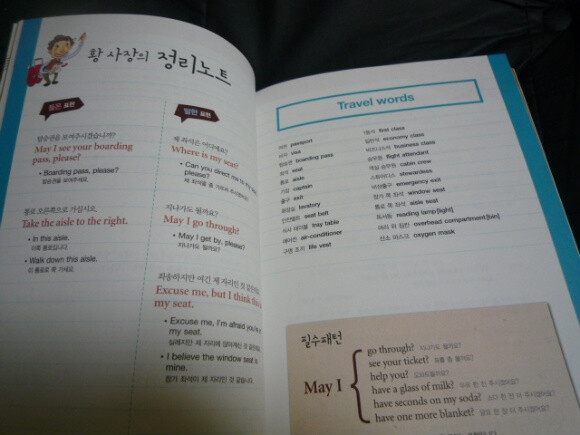 황 사장의 정리노트
들은 표현
탑승권을 보여주시겠습니까?
May I see your boarding
pass, please?
• Boarding pass, please?
탑승권을 보여주세요.
통로 오른쪽으로 가십시오.
Take the aisle to the right.
• In this aisle.
이쪽 통로입니다.
• Walk down this aisle.
이 통로로 쭉 가세요.
말한 표현
제 좌석은 어디예요?
Where is my seat?
• Can you direct me to my
please?
지나가도 될까요?
May I go through?
• May I get by, please?
지나가도 될까요?
죄송하지만 여긴 제 자리인 것 같은
Excuse me, but I think th
my seat.
• Excuse me, I'm afraid you're
my seat.
실례지만 제 자리에 앉아계신 것
• I believe the window seat is
mine.
창가 좌석이 제 자리인 것 같습니다.
Travel words
여권 passport
비자 visa
탑승권 boarding pass
좌석 seat
통로 aisle
기장 captain
출구 exit
화장실 lavatory
안전벨트 seat belt
식사 테이블 tray table
에어컨 air-conditioner
구명 조끼 life vest
1등석 first class
일반석 economy class
비즈니스석 business class
승무원 flight attendant
객실 승무원 cabin crew
스튜어디스 stewardess
비상출구 emergency exit
창가 쪽 좌석 window seat
통로 쪽 좌석 aisle seat
독서등 reading lamp[light]
머리 위 짐칸 overhead compartment[bin]
산소 마스크 oxygen mask
필수패턴
May I
go through? 지나가도 될까요?
see your ticket? 표를 좀 볼까요?
help you? 도와드릴까요?
have a glass of milk? 우유 한 잔 주시겠어요?
have seconds on my soda? 소다 한 잔 더 주시겠어요?
have one more blanket? 담요 한 장 더 주시겠어요?